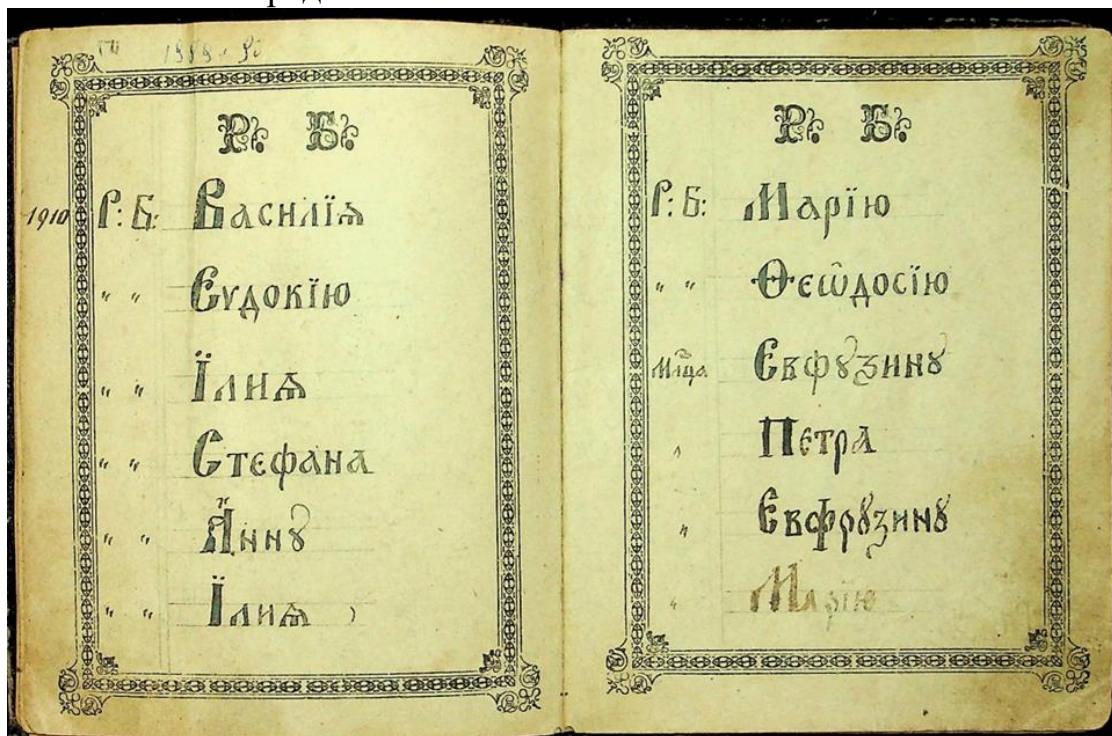 1888
Р. Б.
1910 Р: Б: Василїѧ
„ „ Єѵдокїю
„ „ Їлиѧ
„ „ Стефана
„ „ Анну
„ „ Їлиѧ
Р. Б.
Р: Б: Марїю
„ „ Ѳеѡ̂досїю
Мл҃ца Євфꙋзинꙋ
„ Петра
„ Євфрꙋзинꙋ
„ Марїю